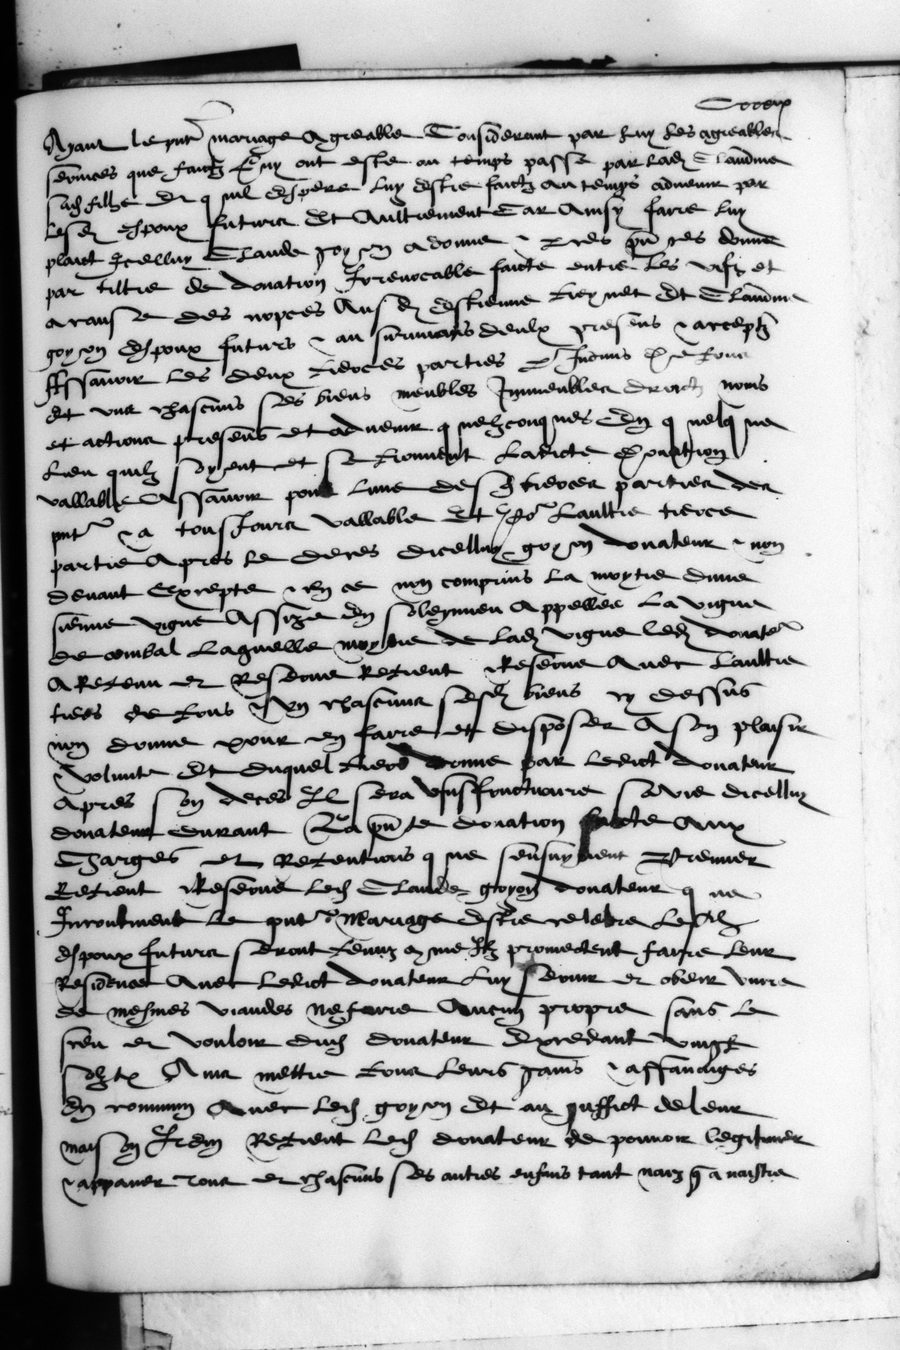 Ayant le pnt mariage Agreable Considerant par luy les agreables
services que faictz luy ont este au temps passe par lad Claudine
sad filhe Et quil espere luy estre faictz au temps advenir par
lesd espoux futurs Et Aultrement Car Ainsy faire luy
plaict Icelluy Claude goyon a donne & par ces pntes donne
par tiltre de donation Irrevocable faicte entre les vifz et
a cause des nopces Ausd Estienne et Claudine
goyon Espoux futurs & au survivans deulx presens & acceptz
Assavoir les deux tierces parties de tous
et ung chascuns ses biens meubles Immeubles droictz noms
et actions presens et advenir quelzconques En quelque
lieu quilz soyent et se treuvent Ladicte donation
vallable Assavoir pour lune desd tierces parties des
pnt & a tousjours vallable Et po Laultre tierce
partie Apres le deces dicelluy goyon donateur & non
devant Excepte & En ce non comprins la moytie dune
sienne vigne Assize En Appellee La vigne
de combal Laquelle moytie de lad vigne led donate
a Retenu et Reserve Retient & Reserve Avec Laultre
tiers de tous & Ung chascuns sesd biens cy dessus
non donne pour en faire et disposer A son plaisir
& volunte Et duquel tiers donne par ledict donateur
Apres son deces Il sera usufructuaire sa vie dicelluy
donateur durant La pnte donation faicte Aux
Charges et Retentions que sensuyvent Premier
Retient & Reserve led Claude goyon donateur que
Incontinent le pnt Mariage estre celebre Lesd
espoux futurs seront tenuz comme Ilz promectent faire leur
Residence Avec Ledict donateur Luy servir et obeir vivre
de mesmes viandes ne faire Aucun propre sans le
sceu et vouloir dud donateur Excedant vingt
solz tz Ains mettre tous leurs gains & affanaiges
En commun Avec led goyon Et au proffict de leur
maison Item Retient led donateur de pouvoir legitimer
& appaner tous et chascuns ses autres enfans tant naiz q a naistre